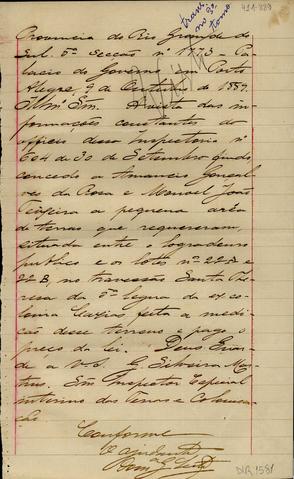 trans
no 3º
tomo
414-339
Provincia do Rio Grande do
Sul. 5ª Secção nº 1773 - Pa-
lacio do Governo em Porto
Alegre, 9 de Outubro de 1889.
Illmº Snr. Á vista das in-
formações constantes do
officio dessa Inspectoria nº
604 de 30 de Setembro findo
concedo a Amancio Gonçal-
ves da Rosa e Manoel João
Teixeira a pequena area
de terras que requereram,
situada entre o logradouro
publico e os lotes nº 22 B e
22 B, no travessão Santa The-
resa da 5ª legua da ex-co-
lonia Caxias, feita a medi-
ção desse terreno e pago o
preço da lei. Deus Guar-
de a V. S. G. Silveira Mar-
tins. Snr Inspector Especial
interino das Terras e Colonisa-
ção
Conforme
O ajudante
DLR 1581